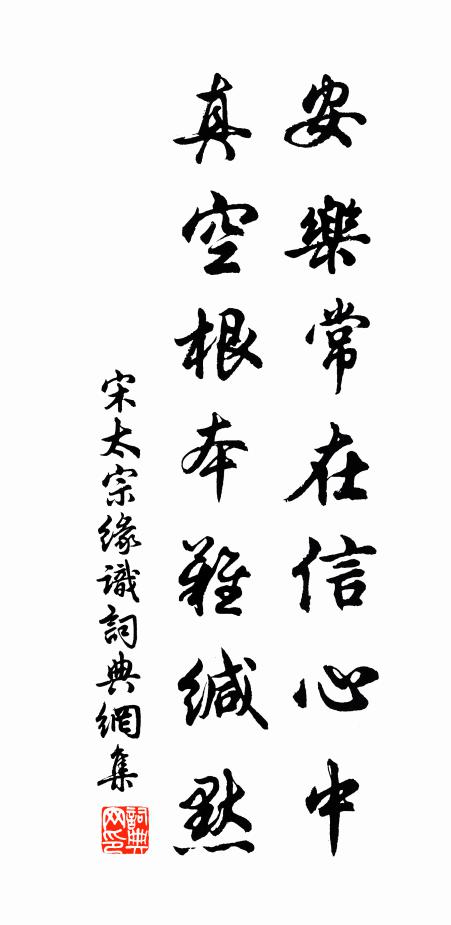 安樂常在信心中
真空根本難緘默
宋太宗緣識詞典網集
詞典網印